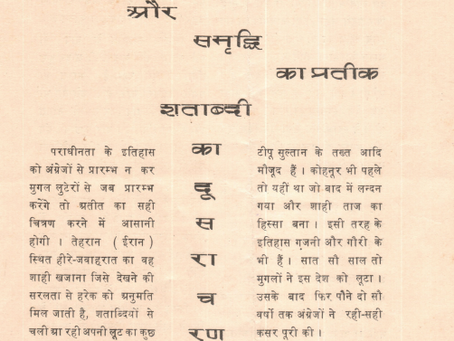 और
समृद्धि
का प्रतीक
शताब्दी
का
दू
स
रा
च
र
ण
पराधीनता के इतिहास
को अंग्रेजों से प्रारम्भ न कर
मुगल लुटेरों से जब प्रारम्भ
करेंगे तो अतीत का सही
चित्रण करने में आसानी
होगी । तेहरान ( ईरान )
स्थित हीरे-जवाहरात का वह
शाही खजाना जिसे देखने की
सरलता से हरेक को अनुमति
मिल जाती है, शताब्दियों से
चली आ रही अपनी लूट का कुछ
टीपू सुल्तान के तख्त आदि
मौजूद हैं । कोहनूर भी पहले
तो यहीं था जो बाद में लन्दन
गया और शाही ताज का
हिस्सा बना । इसी तरह के
इतिहास गज़नी और गौरी के
भी हैं । सात सौ साल तो
मुगलों ने इस देश को लूटा ।
उसके बाद फिर पौने दो सौ
वर्षों तक अंग्रेजों ने रही-सही
कसर पूरी की ।